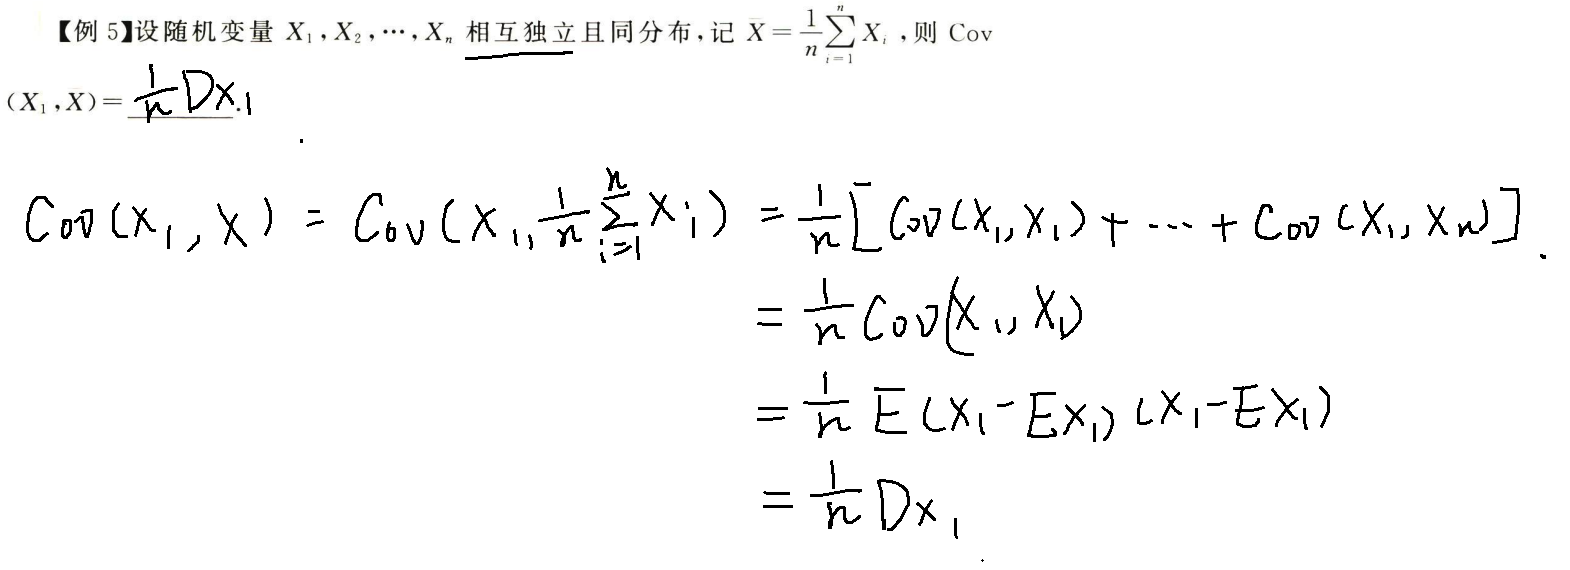 【例 5】设随机变量 X₁,X₂,…,Xₙ 相互独立且同分布,记 X̄ = 1/n ∑ᵢ₌₁ⁿ Xᵢ ,则 Cov
(X₁,X)= 1/n DX₁
Cov(X₁, X) = Cov(X₁, 1/n ∑ᵢ₌₁ⁿ Xᵢ) = 1/n [Cov(X₁, X₁) + ⋯ + Cov(X₁, Xₙ)].
= 1/n Cov(X₁, X₁)
= 1/n E(X₁-EX₁)(X₁-EX₁)
= 1/n DX₁